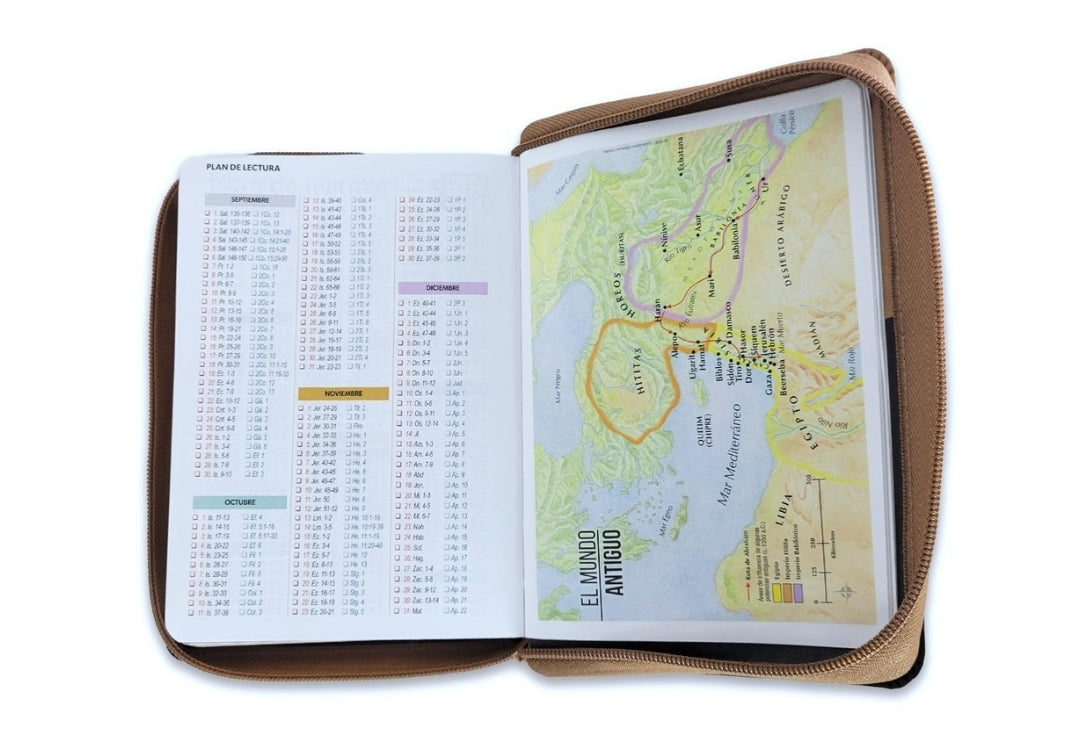 PLAN DE LECTURA
SEPTIEMBRE
1: Sal. 135-136 1Co. 12
2: Sal. 137-139 1Co. 13
3: Sal. 140-142 1Co. 14:1-20
4: Sal. 143-145 1Co. 14:21-40
5: Sal. 146-147 1Co. 15:1-28
6: Sal. 148-150 1Co. 15:29-58
7: Pr. 1-2 1Co. 16
8: Pr. 3-5 2Co. 1
9: Pr. 6-7 2Co. 2
10: Pr. 8-9 2Co. 3
11: Pr. 10-12 2Co. 4
12: Pr. 13-15 2Co. 5
13: Pr. 16-18 2Co. 6
14: Pr. 19-21 2Co. 7
15: Pr. 22-24 2Co. 8
16: Pr. 25-26 2Co. 9
17: Pr. 27-29 2Co. 10
18: Pr. 30-31 2Co. 11:1-15
19: Ec. 1-3 2Co. 11:16-33
20: Ec. 4-6 2Co. 12
21: Ec. 7-9 2Co. 13
22: Ec. 10-12 Gá. 1
23: Cnt. 1-3 Gá. 2
24: Cnt. 4-5 Gá. 3
25: Cnt. 6-8 Gá. 4
26: Is. 1-2 Gá. 5
27: Is. 3-4 Gá. 6
28: Is. 5-6 Ef. 1
29: Is. 7-8 Ef. 2
30: Is. 9-10 Ef. 3
OCTUBRE
1: Is. 11-13 Ef. 4
2: Is. 14-16 Ef. 5:1-16
3: Is. 17-19 Ef. 5:17-33
4: Is. 20-22 Ef. 6
5: Is. 23-25 Fil. 1
6: Is. 26-27 Fil. 2
7: Is. 28-29 Fil. 3
8: Is. 30-31 Fil. 4
9: Is. 32-33 Col. 1
10: Is. 34-36 Col. 2
11: Is. 37-38 Col. 3
12: Is. 39-40 Col. 4
13: Is. 41-42 1Ts. 1
14: Is. 43-44 1Ts. 2
15: Is. 45-46 1Ts. 3
16: Is. 47-49 1Ts. 4
17: Is. 50-52 1Ts. 5
18: Is. 53-55 2Ts. 1
19: Is. 56-58 2Ts. 2
20: Is. 59-61 2Ts. 3
21: Is. 62-64 1Ti. 1
22: Is. 65-66 1Ti. 2
23: Jer. 1-2 1Ti. 3
24: Jer. 3-5 1Ti. 4
25: Jer. 6-8 1Ti. 5
26: Jer. 9-11 1Ti. 6
27: Jer. 12-14 2Ti. 1
28: Jer. 15-17 2Ti. 2
29: Jer. 18-19 2Ti. 3
30: Jer. 20-21 2Ti. 4
31: Jer. 22-23 Tit. 1
NOVIEMBRE
1: Jer. 24-26 Tit. 2
2: Jer. 27-29 Tit. 3
3: Jer. 30-31 Flm.
4: Jer. 32-33 He. 1
5: Jer. 34-36 He. 2
6: Jer. 37-39 He. 3
7: Jer. 40-42 He. 4
8: Jer. 43-45 He. 5
9: Jer. 46-47 He. 6
10: Jer. 48-49 He. 7
11: Jer. 50 He. 8
12: Jer. 51-52 He. 9
13: Lm. 1-2 He. 10:1-18
14: Lm. 3-5 He. 10:19-39
15: Ez. 1-2 He. 11:1-19
16: Ez. 3-4 He. 11:20-40
17: Ez. 5-7 He. 12
18: Ez. 8-10 He. 13
19: Ez. 11-13 Stg. 1
20: Ez. 14-15 Stg. 2
21: Ez. 16-17 Stg. 3
22: Ez. 18-19 Stg. 4
23: Ez. 20-21 Stg. 5
24: Ez. 22-23 1P. 1
25: Ez. 24-26 1P. 2
26: Ez. 27-29 1P. 3
27: Ez. 30-32 1P. 4
28: Ez. 33-34 1P. 5
29: Ez. 35-36 2P. 1
30: Ez. 37-39 2P. 2
DICIEMBRE
1: Ez. 40-41 2P. 3
2: Ez. 42-44 1Jn. 1
3: Ez. 45-46 1Jn. 2
4: Ez. 47-48 1Jn. 3
5: Dn. 1-2 1Jn. 4
6: Dn. 3-4 1Jn. 5
7: Dn. 5-7 2Jn.
8: Dn. 8-10 3Jn.
9: Dn. 11-12 Jud.
10: Os. 1-4 Ap. 1
11: Os. 5-8 Ap. 2
12: Os. 9-11 Ap. 3
13: Os. 12-14 Ap. 4
14: Jl. Ap. 5
15: Am. 1-3 Ap. 6
16: Am. 4-6 Ap. 7
17: Am. 7-9 Ap. 8
18: Abd. Ap. 9
19: Jon. Ap. 10
20: Mi. 1-3 Ap. 11
21: Mi. 4-5 Ap. 12
22: Mi. 6-7 Ap. 13
23: Nah. Ap. 14
24: Hab. Ap. 15
25: Sof. Ap. 16
26: Hag. Ap. 17
27: Zac. 1-4 Ap. 18
28: Zac. 5-8 Ap. 19
29: Zac. 9-12 Ap. 20
30: Zac. 13-14 Ap. 21
31: Mal. Ap. 22
EL MUNDO
ANTIGUO
Mar Negro
Mar Caspio
Mar Egeo
Mar Mediterráneo
QUITIM
(CHIPRE)
HITITAS
HOREOS
(HURRITAS)
Harán
Alepo
Ugarit
Hamat
SIRIA
Biblos
Damasco
Sidón
Tiro
Hasor
Dor
Siquem
Jerusalén
Gaza
Hebrón
Beerseba
Mar Muerto
Río Éufrates
Río Tigris
Nínive
Asur
Mari
BABILONIA
Babilonia
Ur
Susa
Echatana
Golfo
Pérsico
DESIERTO ARÁBIGO
MADIÁN
Mar Rojo
EGIPTO
Río Nilo
LIBIA
Ruta de Abraham
Áreas de influencia de algunas
potencias antiguas (c. 1350 a.C.)
Egipto
Imperio Hitita
Imperio Babilónico
0 125 250 500
Kilómetros